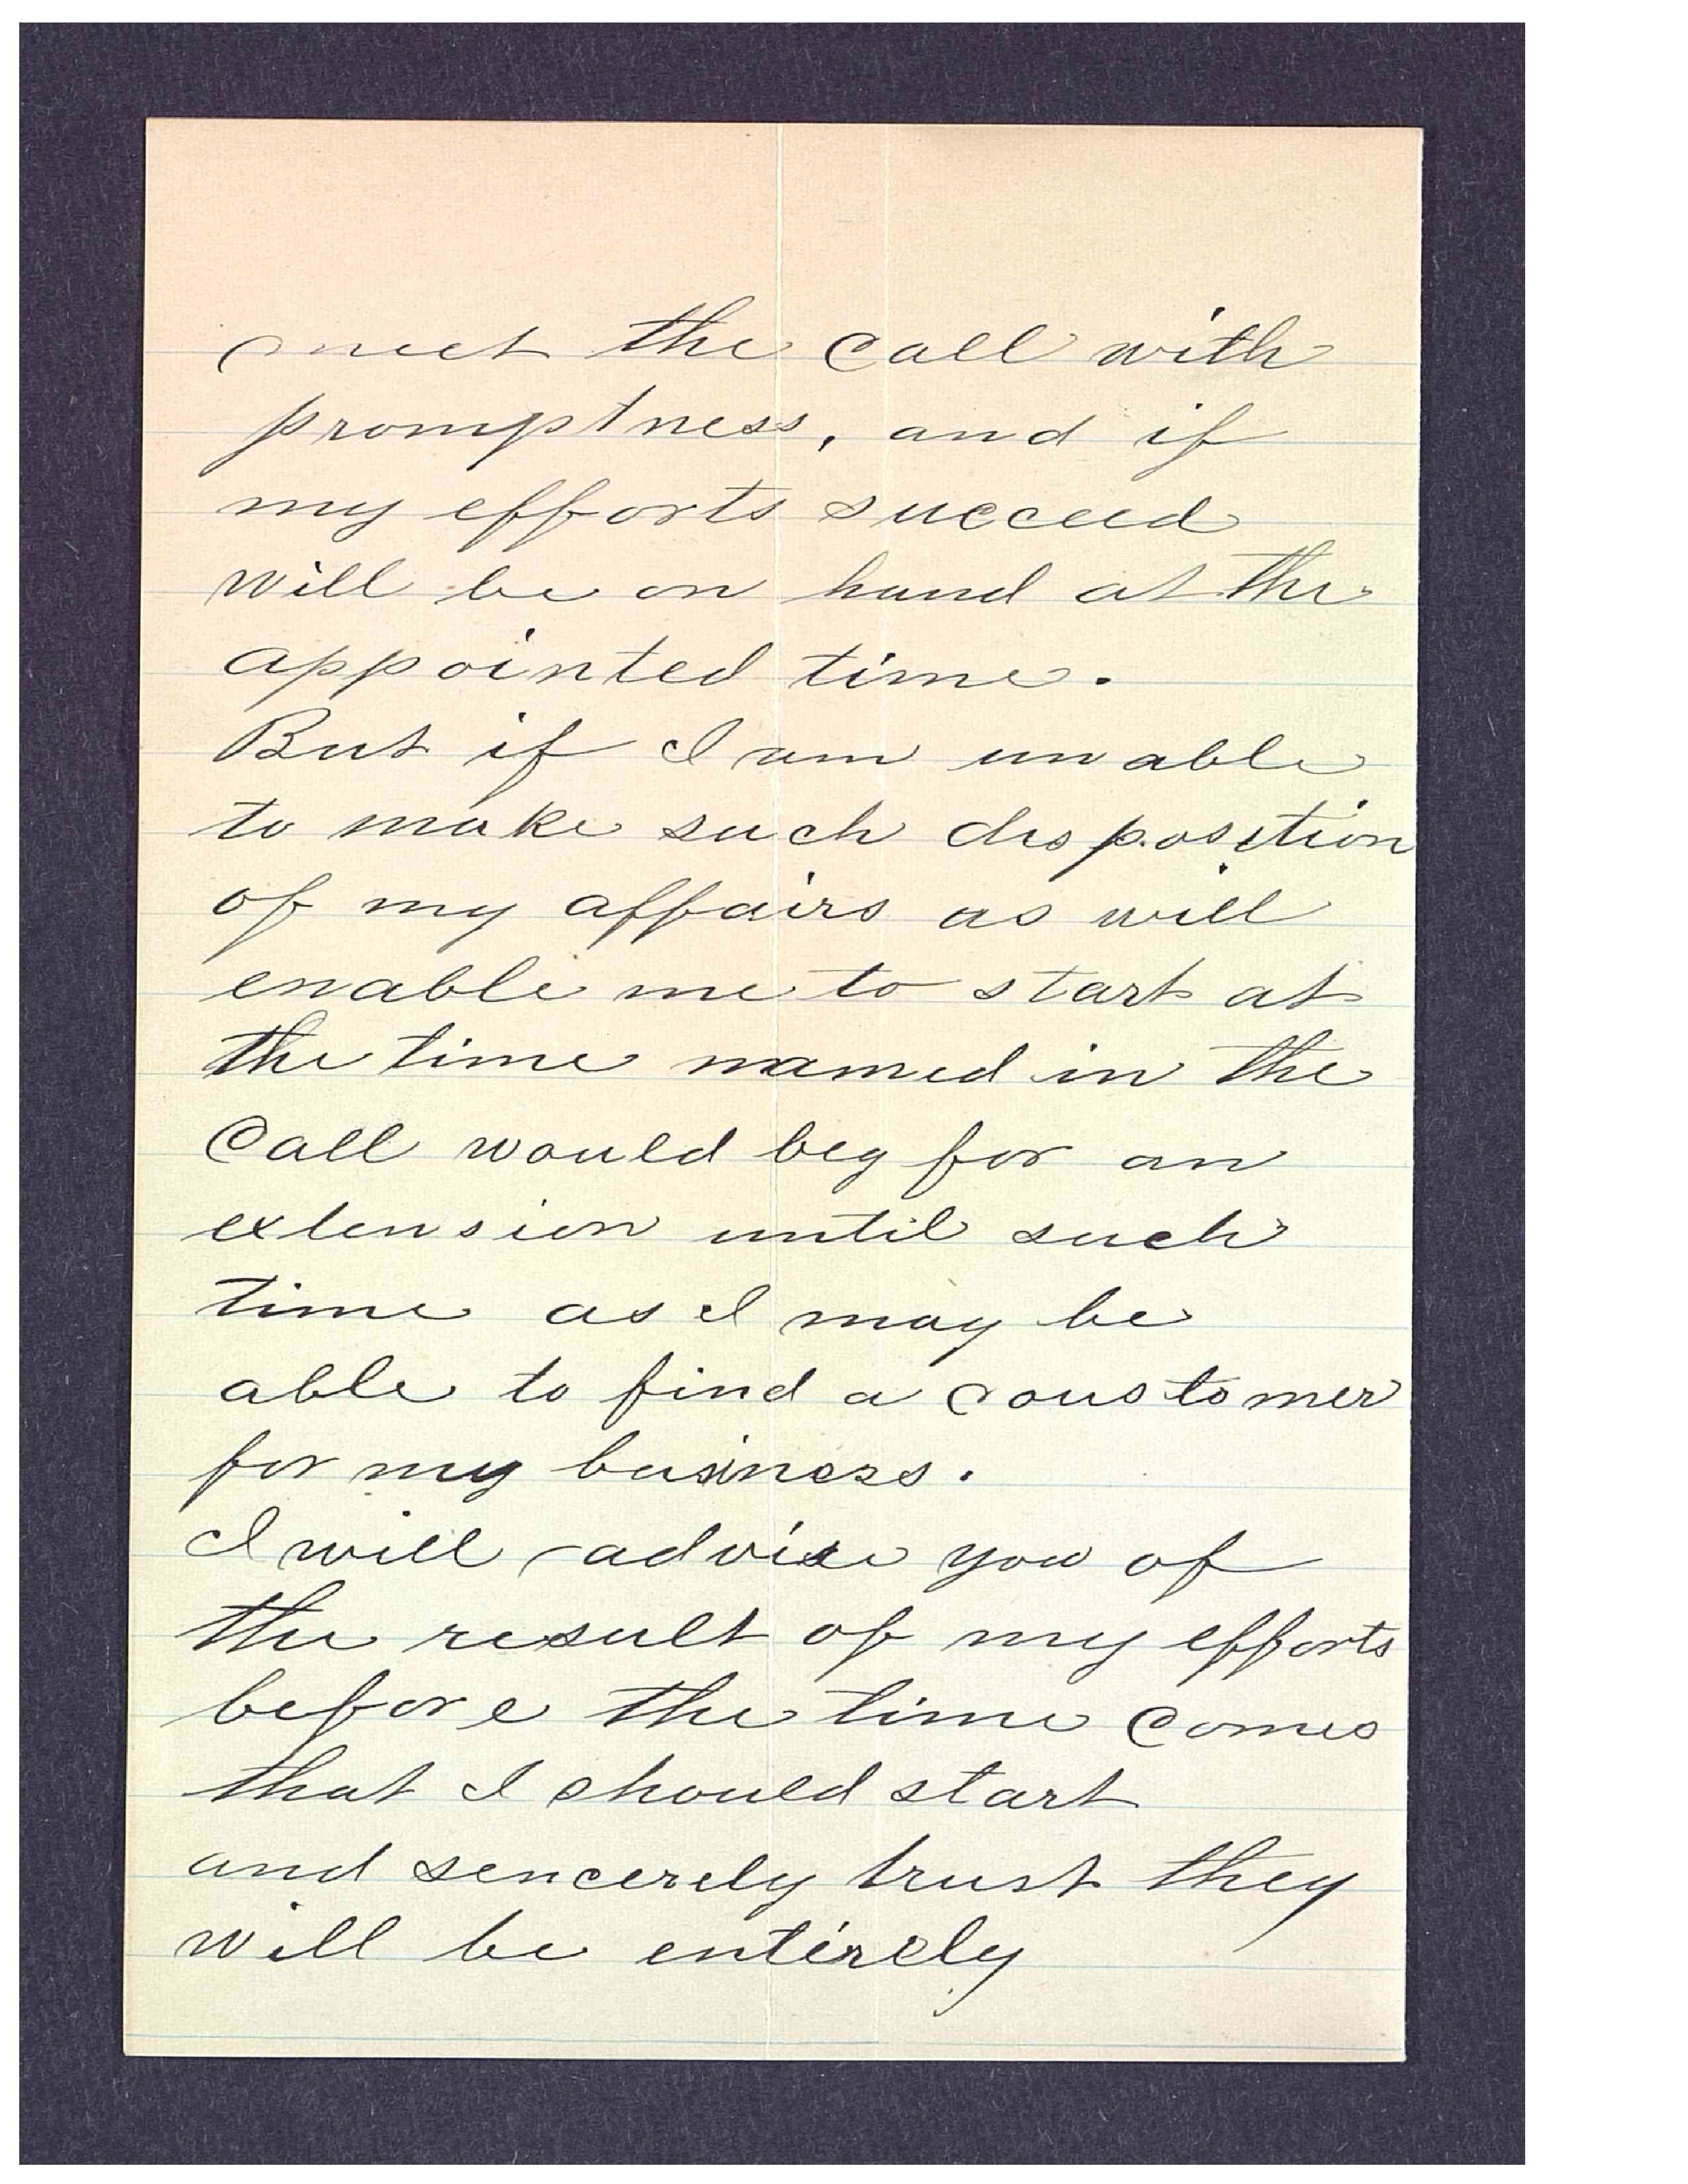 meet the call with
promptness, and if
my efforts succeed
will be on hand at the
appointed time.
But if I am unable
to make such disposition
of my affairs as will
enable me to start at
the time named in the
Call would beg for an
extension until such
time as I may be
able to find a coustomer
for my business.
I will advise you of
the result of my efforts
before the time comes
that I should start
and sencerely trust they
will be entirely